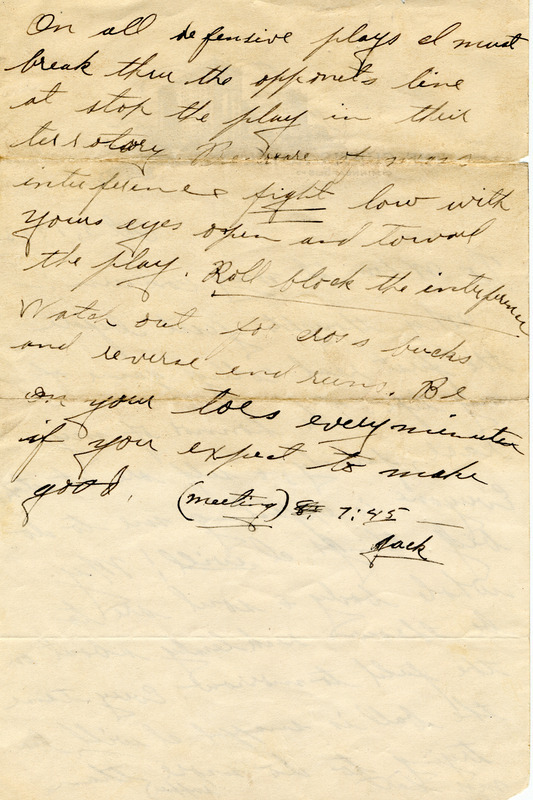 On all defensive plays I must
break thru the opponets line
at stop the play in their
territory. Beware of mass
interference fight low with
yours eyes open and toward
the play. Roll block the interference
Watch out for cross bucks
and reverse end runs. Be
on your toes every minute
if you expect to make
good.
(meeting) 7:45
Jack